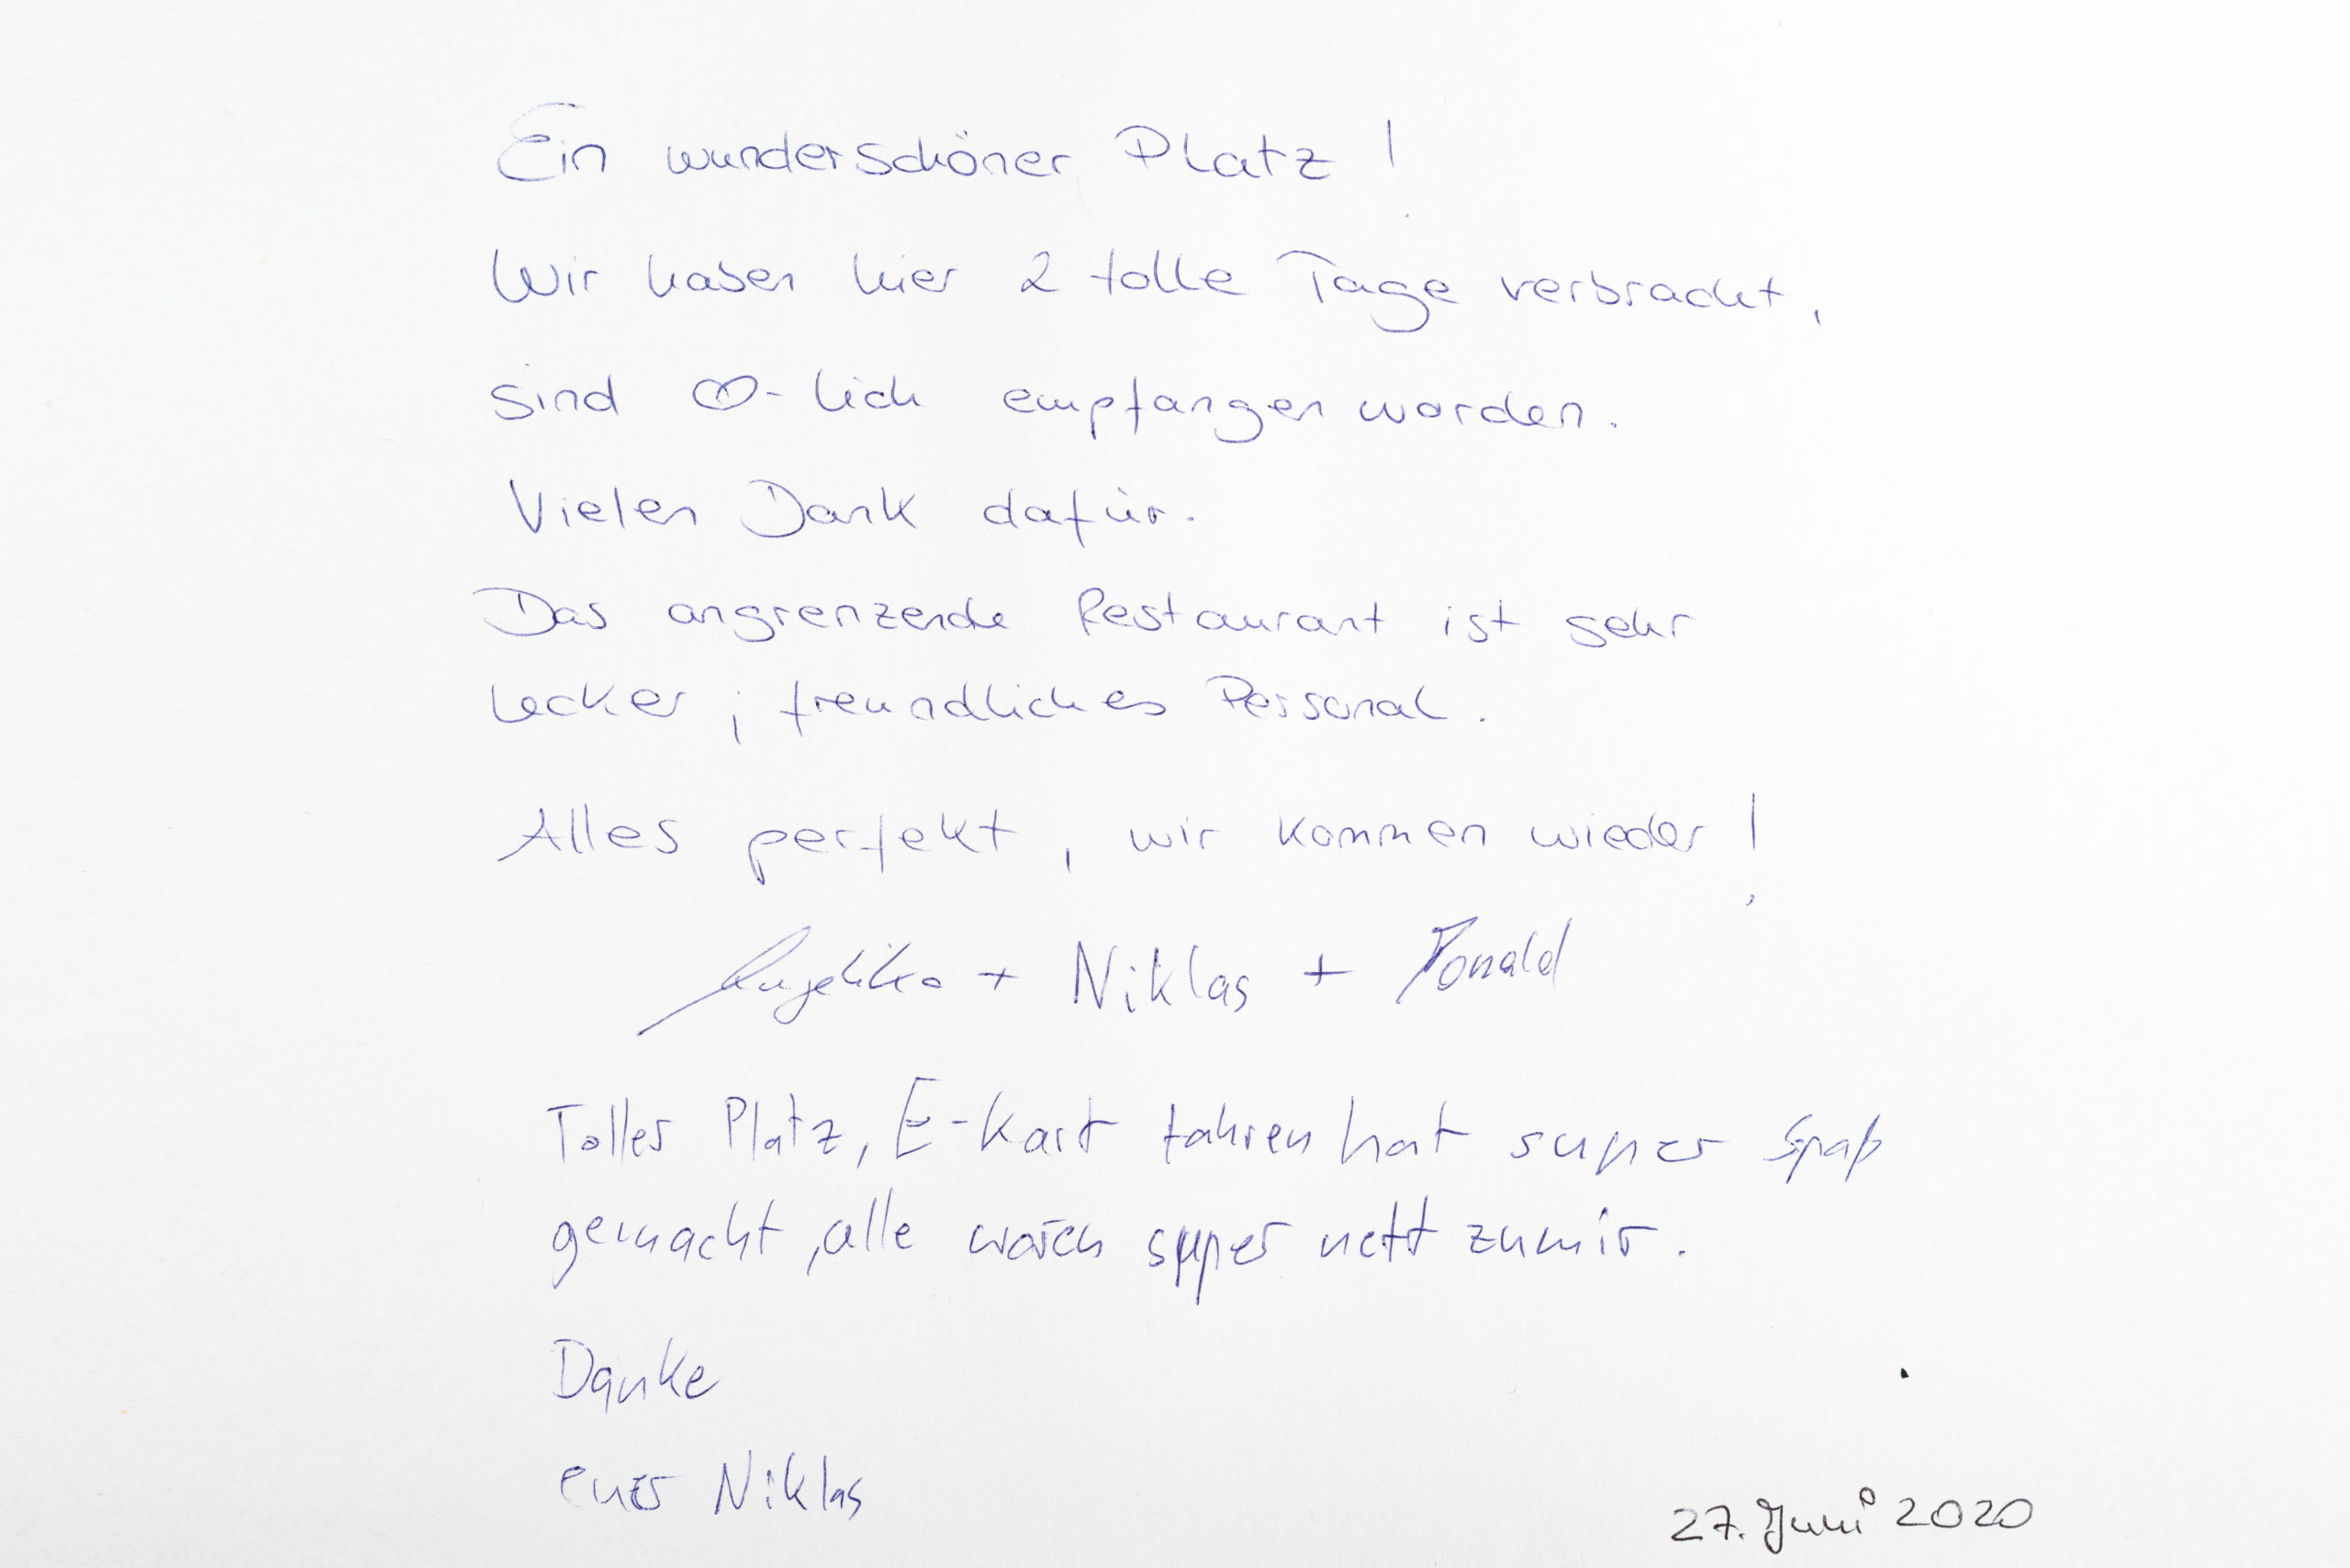 Ein wunderschöner Platz!
Wir haben hier 2 tolle Tage verbracht,
sind ♡-lich empfangen worden.
Vielen Dank dafür.
Das angrenzende Restaurant ist sehr
lecker; freundliches Personal.
Alles perfekt, wir kommen wieder!
Angelika + Niklas + Ronald
Toller Platz, E-Kart fahren hat super Spaß
gemacht, alle waren super nett zu mir.
Danke
euer Niklas
27. Juni 2020